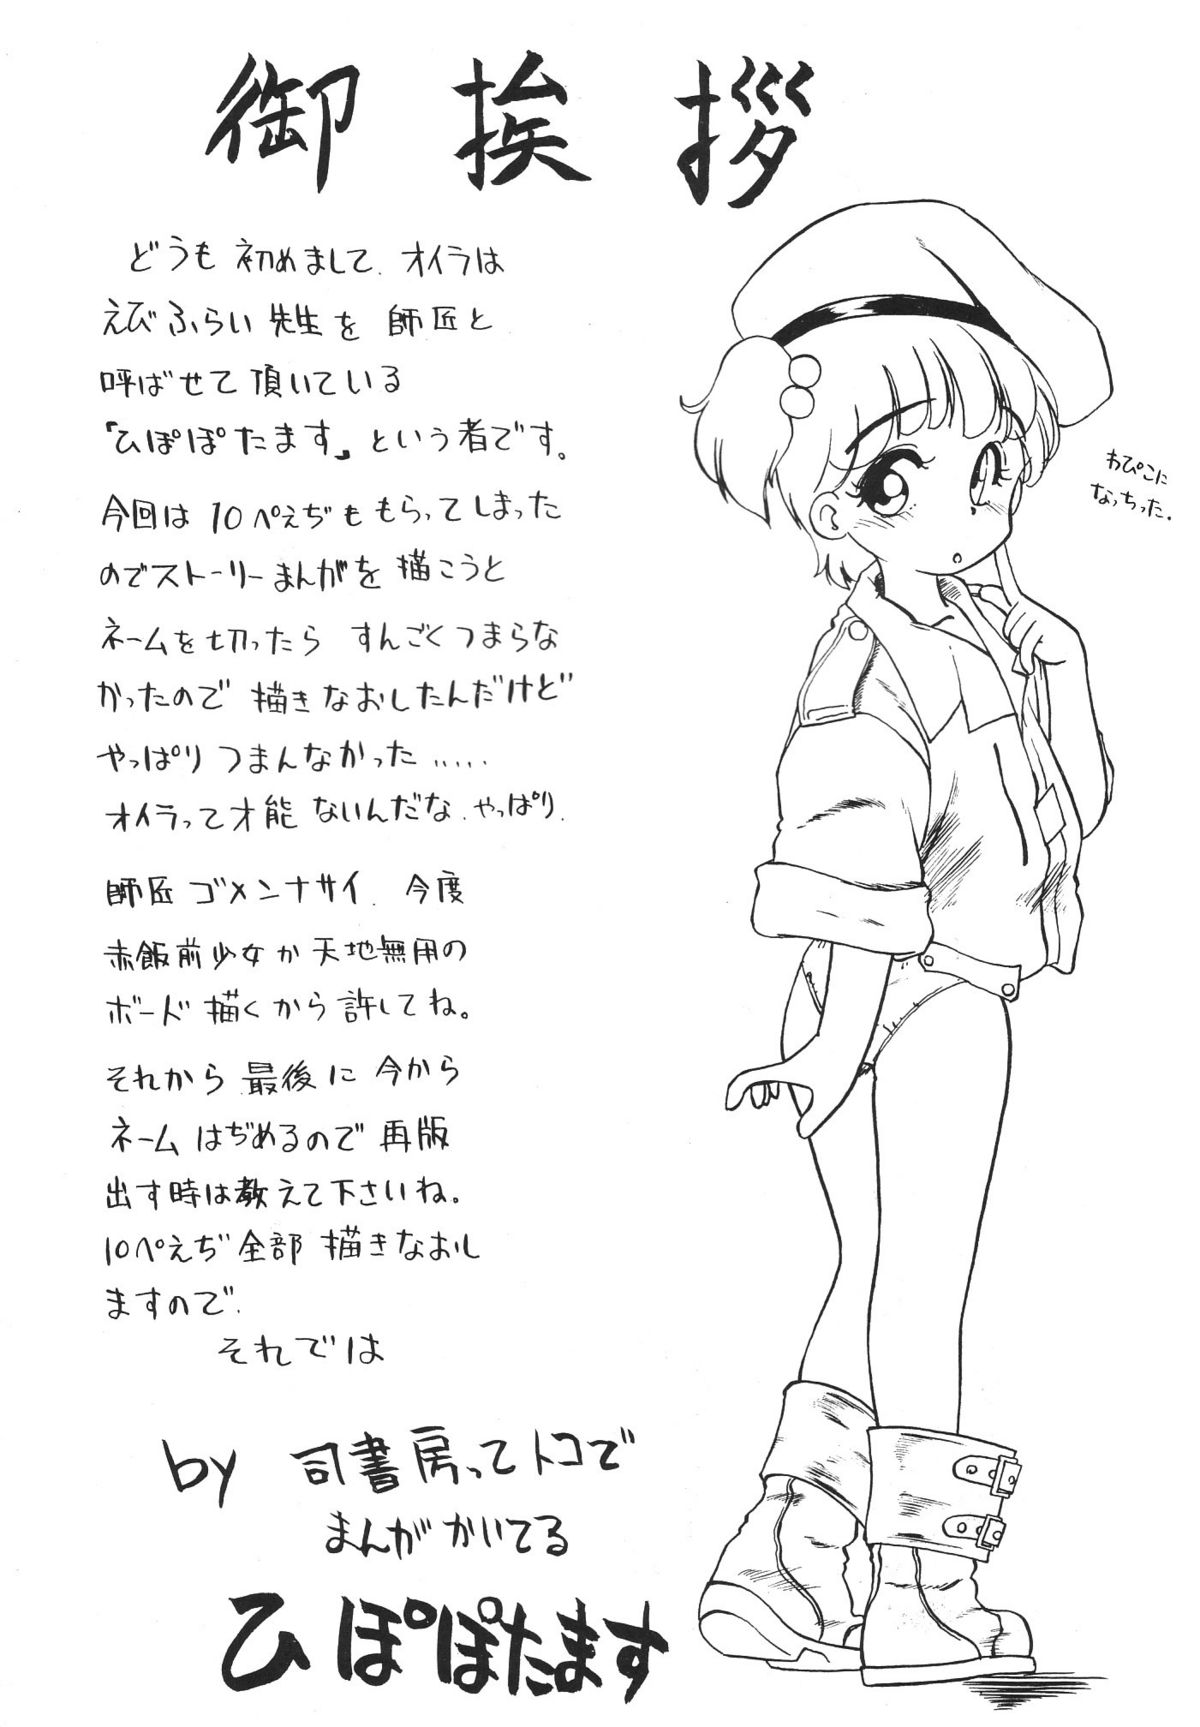 御挨拶
どうも 初めまして. オイラは
えびふらい先生を 師匠と
呼ばせて頂いている
『ひぽぽたます』という者です。
今回は10ぺぇぢももらってしまった
のでストーリーまんがを描こうと
ネームを切ったら すんごくつまらな
かったので 描きなおしたんだけど
やっぱりつまんなかった.....
オイラって才能ないんだな.やっぱり.
師匠ゴメンナサイ. 今度
赤飯前少女か天地無用の
ボード描くから許してね。
それから最後に今から
ネームはぢめるので再版
出す時は教えて下さいね。
10ぺぇぢ全部描きなおし
ますので.
それでは
by 司書房ってトコで
まんがかいてる
ひぽぽたます
わぴこに
なっちった.